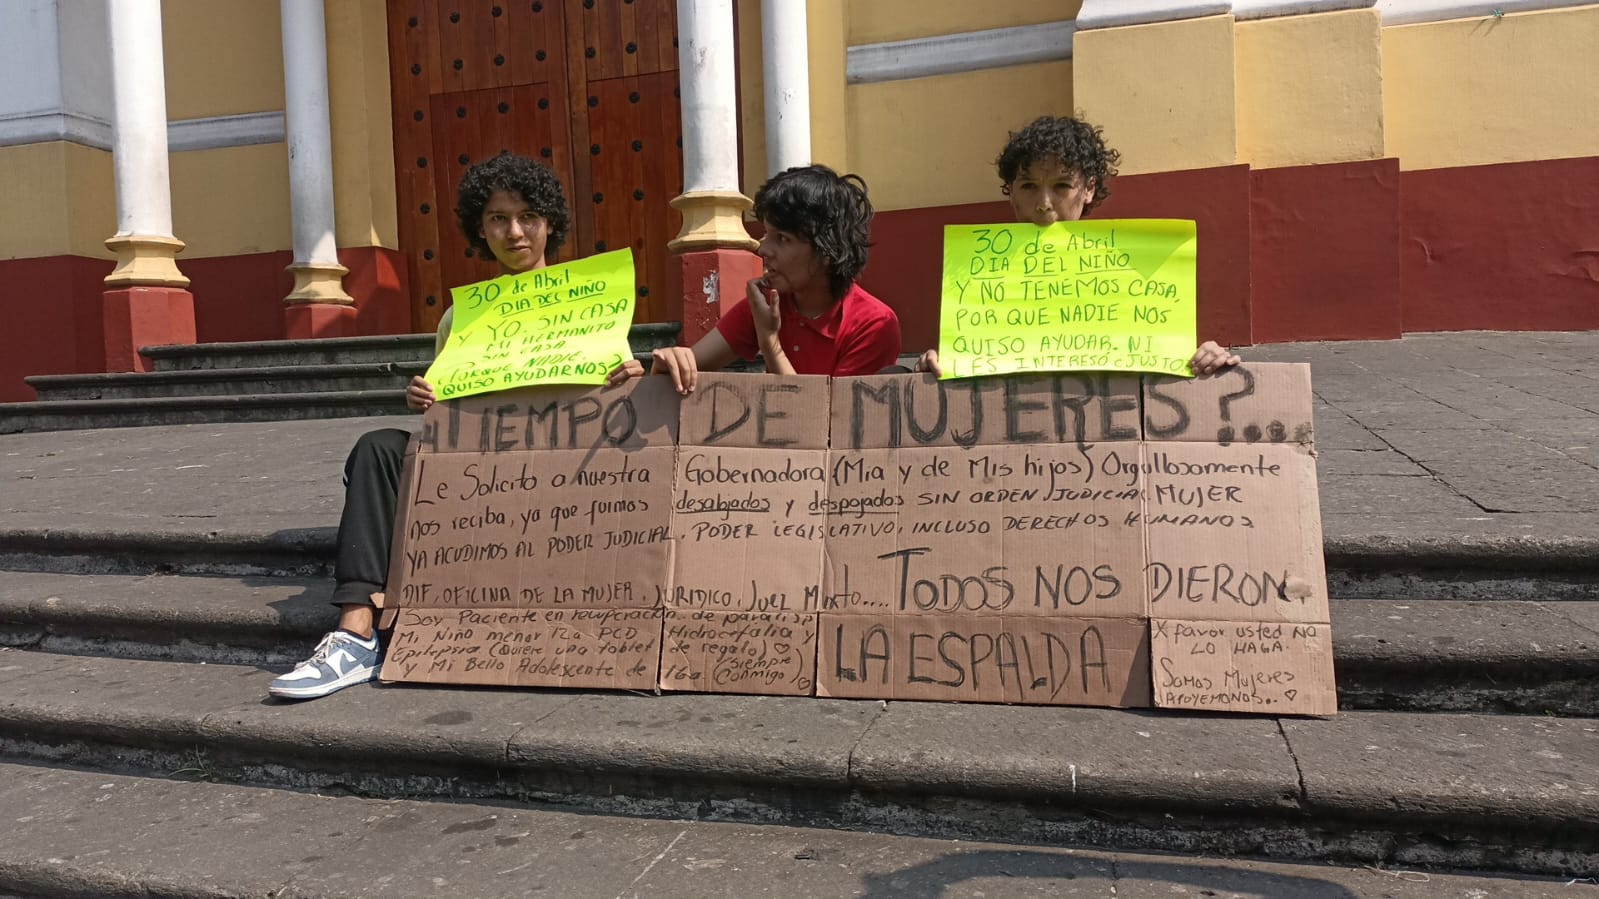 30 de Abril
DIA DEL NIÑO
Y YO. SIN CASA
MI HERMANITO
SIN CASA
PORQUE NADIE.
QUISO AYUDARNOS?
30 de Abril
DIA DEL NIÑO
Y NO TENEMOS CASA,
POR QUE NADIE NOS
QUISO AYUDAR. NI
LES INTERESÓ
TIEMPO DE MUJERES?...
Le Solicito a nuestra Gobernadora (Mia y de Mis hijos) Orgullosamente MUJER
nos reciba, ya que fuimos desalojados y despojados SIN ORDEN JUDICIAL
YA ACUDIMOS AL PODER JUDICIAL, PODER LEGISLATIVO, INCLUSO DERECHOS HUMANOS
DIF, OFICINA DE LA MUJER, JURIDICO, Juez Mixto.... TODOS NOS DIERON
LA ESPALDA
Soy Paciente en recuperación de
Mi Niño menor 12a. PCD Hidrocefalia y
Epilepsia (Quiere una tablet de regalo) ♡
y Mi Bello Adolescente de 16a. (siempre
Conmigo) ♡
X favor usted NO
LO HAGA.
Somos Mujeres
APOYEMONOS.. ♡